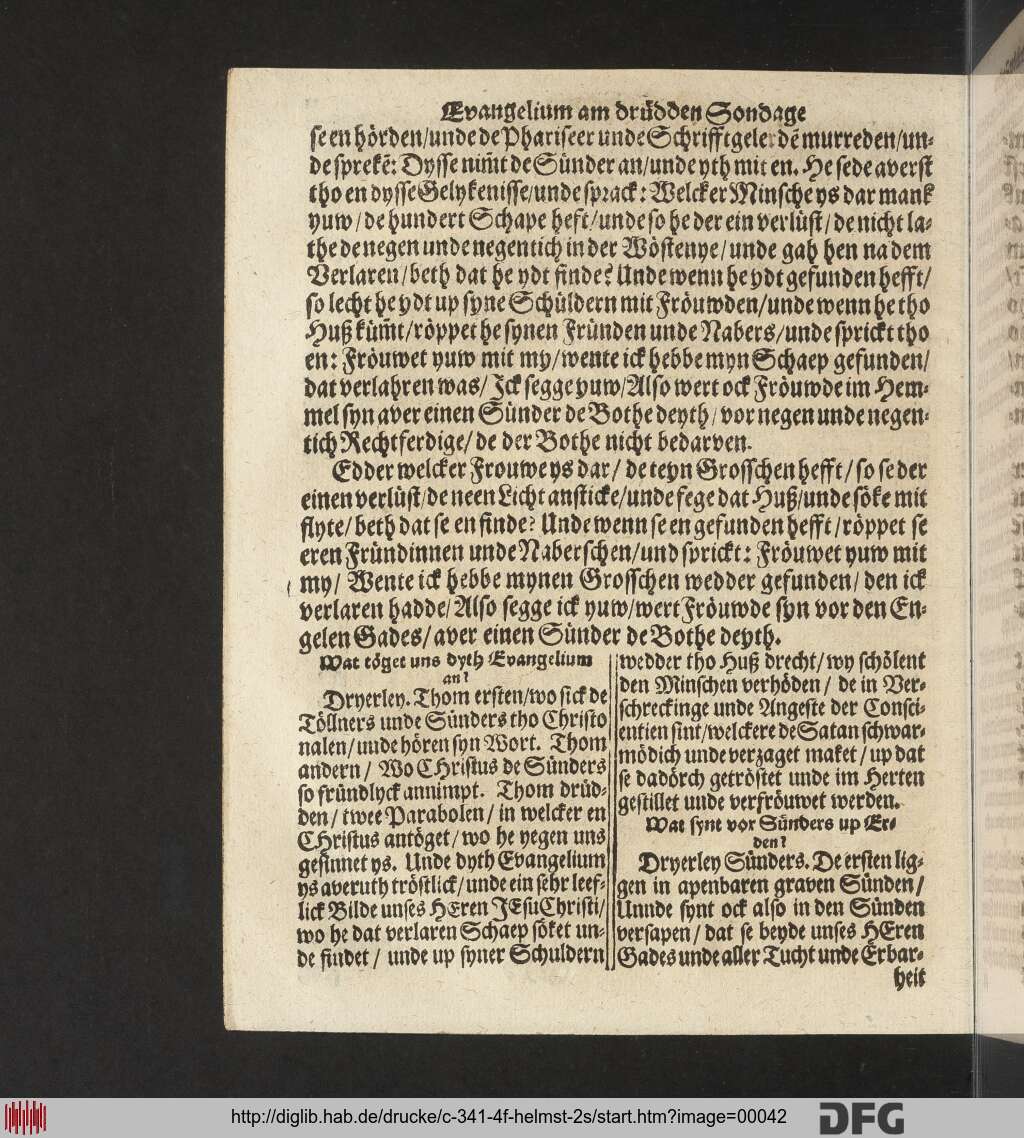 Evangelium am drüdden Sondage
se en hörden/unde de Phariseer unde Schrifftgelerdē murreden/un-
de sprekē: Dysse nim̄t de Sünder an/unde yth mit en. He sede averst
tho en dysse Gelykenisse/unde sprack: Welcker Minsche ys dar mank
yuw/de hundert Schape heft/unde so he der ein verlüst/de nicht la-
the de negen unde negentich in der Wöstenye/unde gah hen na dem
Verlaren/beth dat he ydt finde? Unde wenn he ydt gefunden hefft/
so lecht he ydt up syne Schüldern mit Fröuwden/unde wenn he tho
Huß küm̄t/röppet he synen Fründen unde Nabers/unde sprickt tho
en: Fröuwet yuw mit my/wente ick hebbe myn Schaep gefunden/
dat verlahren was/Ick segge yuw/Also wert ock Fröuwde im Hem-
mel syn aver einen Sünder de Bothe deyth/vor negen unde negen-
tich Rechtferdige/de der Bothe nicht bedarven.
Edder welcker Frouwe ys dar/de teyn Grosschen hefft/so se der
einen verlüst/de neen Licht ansticke/unde fege dat Huß/unde söke mit
flyte/beth dat se en finde? Unde wenn se en gefunden hefft/röppet se
eren Fründinnen unde Naberschen/und sprickt: Fröuwet yuw mit
my/Wente ick hebbe mynen Grosschen wedder gefunden/den ick
verlaren hadde/Also segge ick yuw/wert Fröuwde syn vor den En-
gelen Gades/aver einen Sünder de Bothe deyth.
Wat töget uns dyth Evangelium
an?
Dryerley. Thom ersten/wo sick de
Töllners unde Sünders tho Christo
nalen/unde hören syn Wort. Thom
andern/Wo CHristus de Sünders
so fründlyck annimpt. Thom drüd-
den/twee Parabolen/in welcker en
CHristus antöget/wo he yegen uns
gesinnet ys. Unde dyth Evangelium
ys averuth tröstlick/unde ein sehr leef-
lick Bilde unses HEren JEsu Christi/
wo he dat verlaren Schaep söket un-
de findet/unde up syner Schuldern
wedder tho Huß drecht/wy schölent
den Minschen verhöden/de in Ver-
schreckinge unde Angeste der Consci-
entien sint/welckere de Satan schwar-
mödich unde verzaget maket/up dat
se dadörch getröstet unde im Herten
gestillet unde verfröuwet werden.
Wat synt vor Sünders up Er-
den?
Dryerley Sünders. De ersten lig-
gen in apenbaren graven Sünden/
Unnde synt ock also in den Sünden
versapen/dat se beyde unses HEren
Gades unde aller Tucht unde Erbar-
heit
http://diglib.hab.de/drucke/c-341-4f-helmst-2s/start.htm?image=00042
DFG